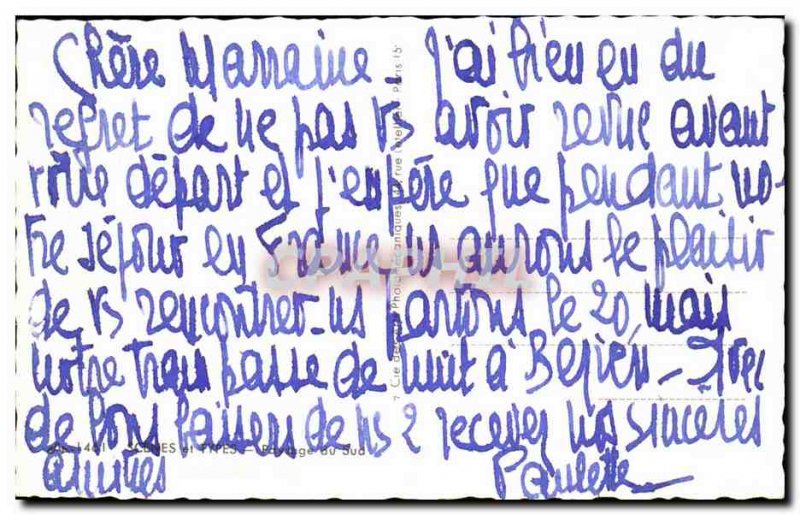 Chère Marraine - J'ai bien eu du
regret de ne pas vs avoir revue avant
votre départ et j'espère que pendant no-
tre séjour en France ns aurons le plaisir
de vs rencontrer - ns partons le 20, mais
notre train passe de nuit à Beziers - Avec
de bons baisers de ns 2 recevez nos sincères
amitiés Paulette
346-1461 SCÈNES et TYPES - Paysage du Sud
Paris 15
CPAPHIL